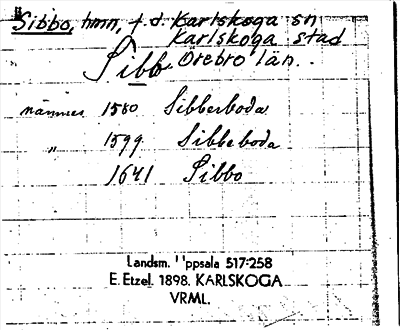 Sibbo, hmn, f.d. Karlskoga sn
Karlskoga stad
Sibb Örebro län.
nämnes 1580 Sibberboda
„ 1599 Sibbeboda
1641 Sibbo
Landsm. Uppsala 517:258
E. Etzel. 1898. KARLSKOGA
VRML.